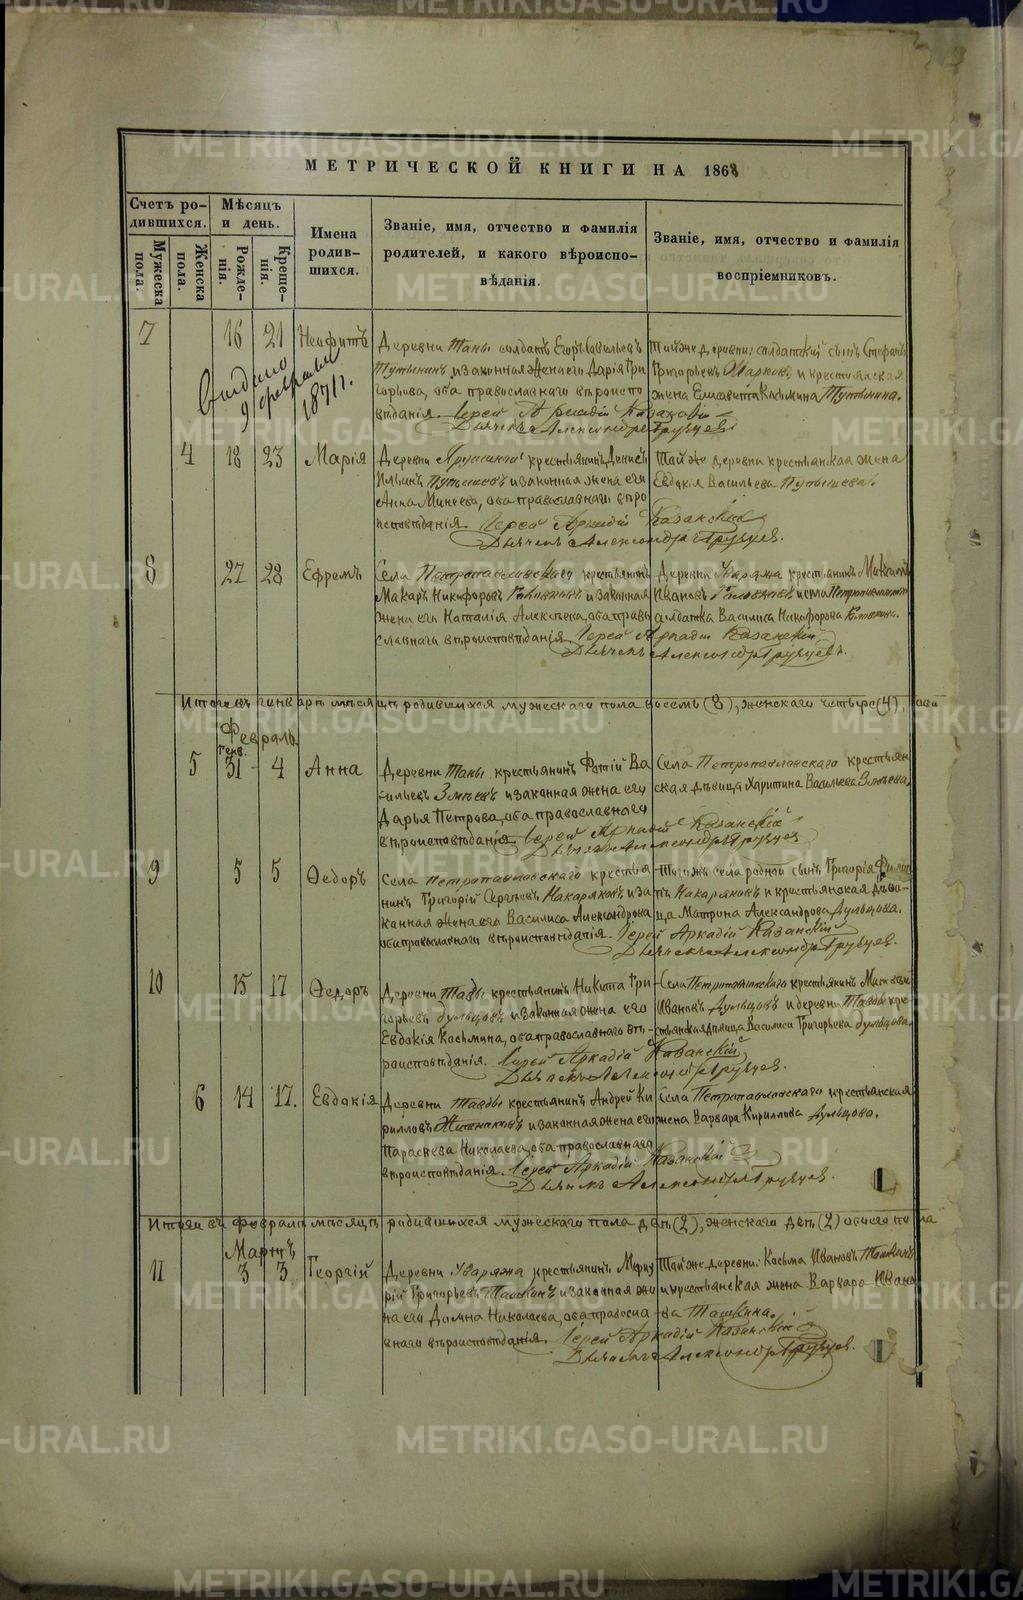 МЕТРИЧЕСКОЙ КНИГИ НА 1868
Счетъ родившихся.
Мѣсяцъ и день.
Имена родившихся.
Званіе, имя, отчество и фамилія родителей, и какого вѣроисповѣданія.
Званіе, имя, отчество и фамилія воспріемниковъ.
Мужеска пола.
Женска пола.
Рожденія.
Крещенія.
7 16 21 Неофитъ
9 февраля
1871 г.
Деревни Таны солдатъ Егоръ Савельевъ
Тутынинъ и законная жена его Дарія Гри-
горьева, оба православнаго вѣроиспо-
вѣданія. Іерей Аркадій Казанскій
Дьячекъ Александръ
Той же деревни: солдатскій сынъ Стефанъ
Григорьевъ и крестьянская
жена Елисавета Козьмина Тутынина.
4 18 23 Марія
Деревни крестьянинъ Денисъ
Ильинъ и законная жена его
Анна Минеева, оба православнаго вѣро
исповѣданія. Іерей Аркадій Казанскій
Дьячекъ Александръ
Той же деревни крестьянская жена
Евдокія Васильева
8 27 28 Ефремъ
Села Петропавловскаго крестьянинъ
Макаръ Никифоровъ и законная
жена его Наталія Алексѣева, оба право
славнаго вѣроисповѣданія. Іерей Аркадій Казанскій
Дьячекъ Александръ
Деревни Уваряжа крестьянинъ Максимъ
Ивановъ и села Петропавловскаго
солдатка Василиса Никифорова
Итого въ январѣ мѣсяцѣ родившихся мужескаго пола восемь (8), женскаго четыре (4),
Февраль
Генв.
5 31 - 4 Анна
Деревни Таны крестьянинъ Фотій Ва
сильевъ Змѣевъ и законная жена его
Дарья Петрова, оба православнаго
вѣроисповѣданія. Іерей Аркадій Казанскій
Дьячекъ Александръ
Села Петропавловскаго крестьян
ская дѣвица Харитина Васильева Змѣева.
9 5 5 Ѳедоръ
Села Петропавловскаго крестья
нинъ Григорій Сергѣевъ Накаряковъ и за
конная жена его Василиса Александрова
оба православнаго вѣроисповѣданія. Іерей Аркадій Казанскій
Дьячекъ Александръ
Того жъ села родной сынъ Григорія
Накаряковъ и крестьянская дѣви-
ца Матрона Александрова Дульцова.
10 15 17 Ѳедоръ
Деревни Тавды крестьянинъ Никита Гри-
горьевъ Дульцовъ и законная жена его
Евдокія Касьмина, оба православнаго вѣ-
роисповѣданія. Іерей Аркадій Казанскій,
Дьячекъ Александръ
Села Петропавловскаго крестьянинъ
Ивановъ Дульцовъ и деревни Тавды кре-
стьянская дѣвица Василиса Григорьева Дульцова.
6 14 17. Евдокія
Деревни Тавды крестьянинъ Андрей Ки
рилловъ и законная жена его
Параскева Николаева, оба православнаго
вѣроисповѣданія. Іерей Аркадій Казанскій
Дьячекъ Александръ
Села Петропавловскаго крестьянская
жена Варвара Кириллова Дульцова.
Итого въ февралѣ мѣсяцѣ родившихся мужескаго пола два (2), женскаго два (2) обоего пола
Мартъ
11 3 3 Георгій
Деревни Уваряжа крестьянинъ Мерку
рій Григорьевъ Ташкинъ и законная же
на его Домна Николаева, оба правосла
внаго вѣроисповѣданія. Іерей Аркадій Казанскій
Дьячекъ Александръ
Той же деревни: Косьма Ивановъ Ташкинъ
и крестьянская жена Варвара Ивано
ва Ташкина.
METRIKI.GASO-URAL.RU